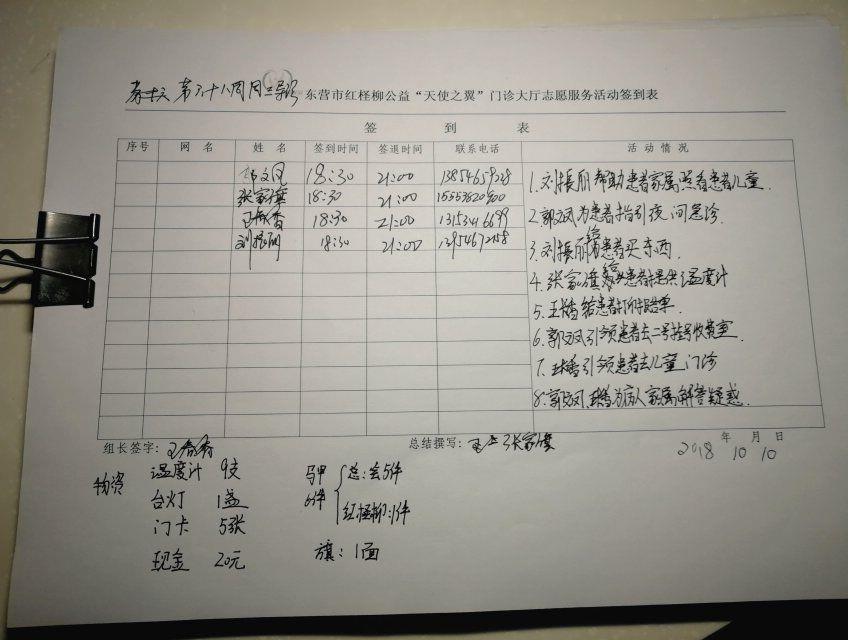 第六十八周周三导诊 东营市红柽柳公益“天使之翼”门诊大厅志愿服务活动签到表
签 到 表
序号 网 名 姓 名 签到时间 签退时间 联系电话 活 动 情 况
郭文凤 18:30 21:00
张家旗 18:30 21:00
18:30 21:00
刘振丽 18:30 21:00
1.刘振丽帮助患者家属照看患者儿童.
2.郭文凤为患者指引夜间急诊.
3.刘振丽给患者买东西.
4.张家旗给患者提供温度计
5.给患者打印报告单.
6.郭文凤引领患者去二号挂号收费室.
7.引领患者去儿童门诊
8.郭文凤为病人家属解答疑惑.
组长签字:
总结撰写: 张家旗
年 月 日
2018 10 10
物资 温度计 9支
台灯 1盏
门卡 5张
现金 20元
马甲 6件 总会5件
红柽柳:1件
旗:1面